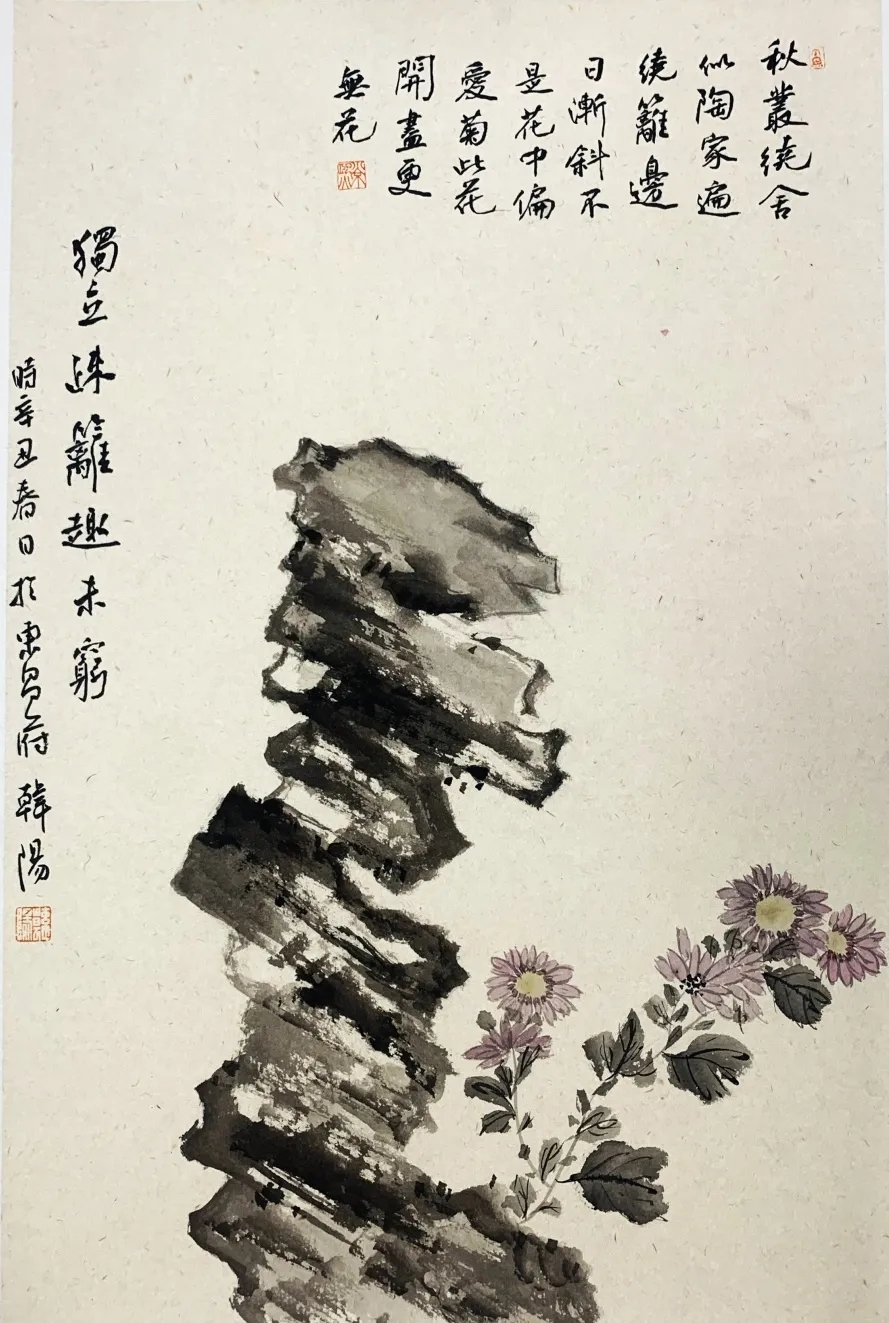 秋叢繞舍
似陶家遍
繞籬邊
日漸斜不
是花中偏
愛菊此花
開盡更
無花
獨立疎籬趣未窮
時辛丑春日於東昌府韓陽